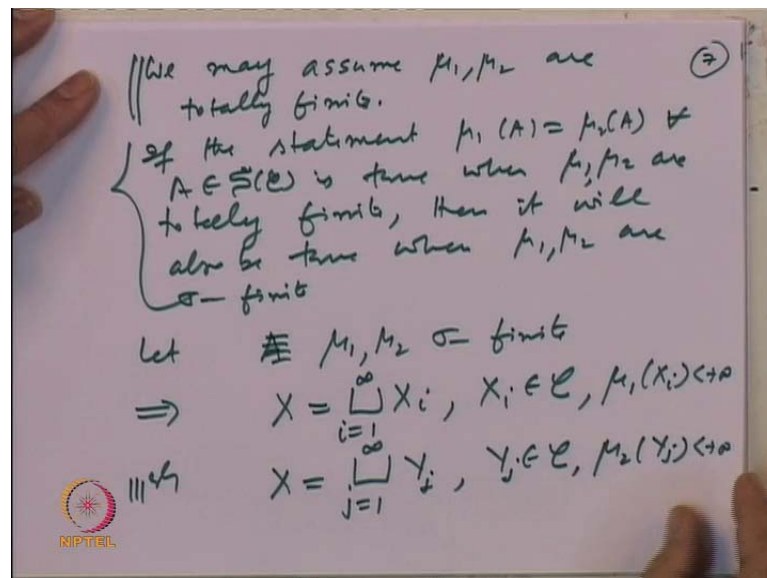 We may assume μ₁, μ₂ are ⑦
totally finite.
If the statement μ₁(A) = μ₂(A) ∀
A ∈ S(C) is true when μ₁, μ₂ are
totally finite, then it will
also be true when μ₁, μ₂ are
σ-finite
Let μ₁, μ₂ σ-finite
⇒ X = ⊔_{i=1}^{∞} X_i, X_i ∈ C, μ₁(X_i) < +∞
|||ly X = ⊔_{j=1}^{∞} Y_j, Y_j ∈ C, μ₂(Y_j) < +∞
NPTEL